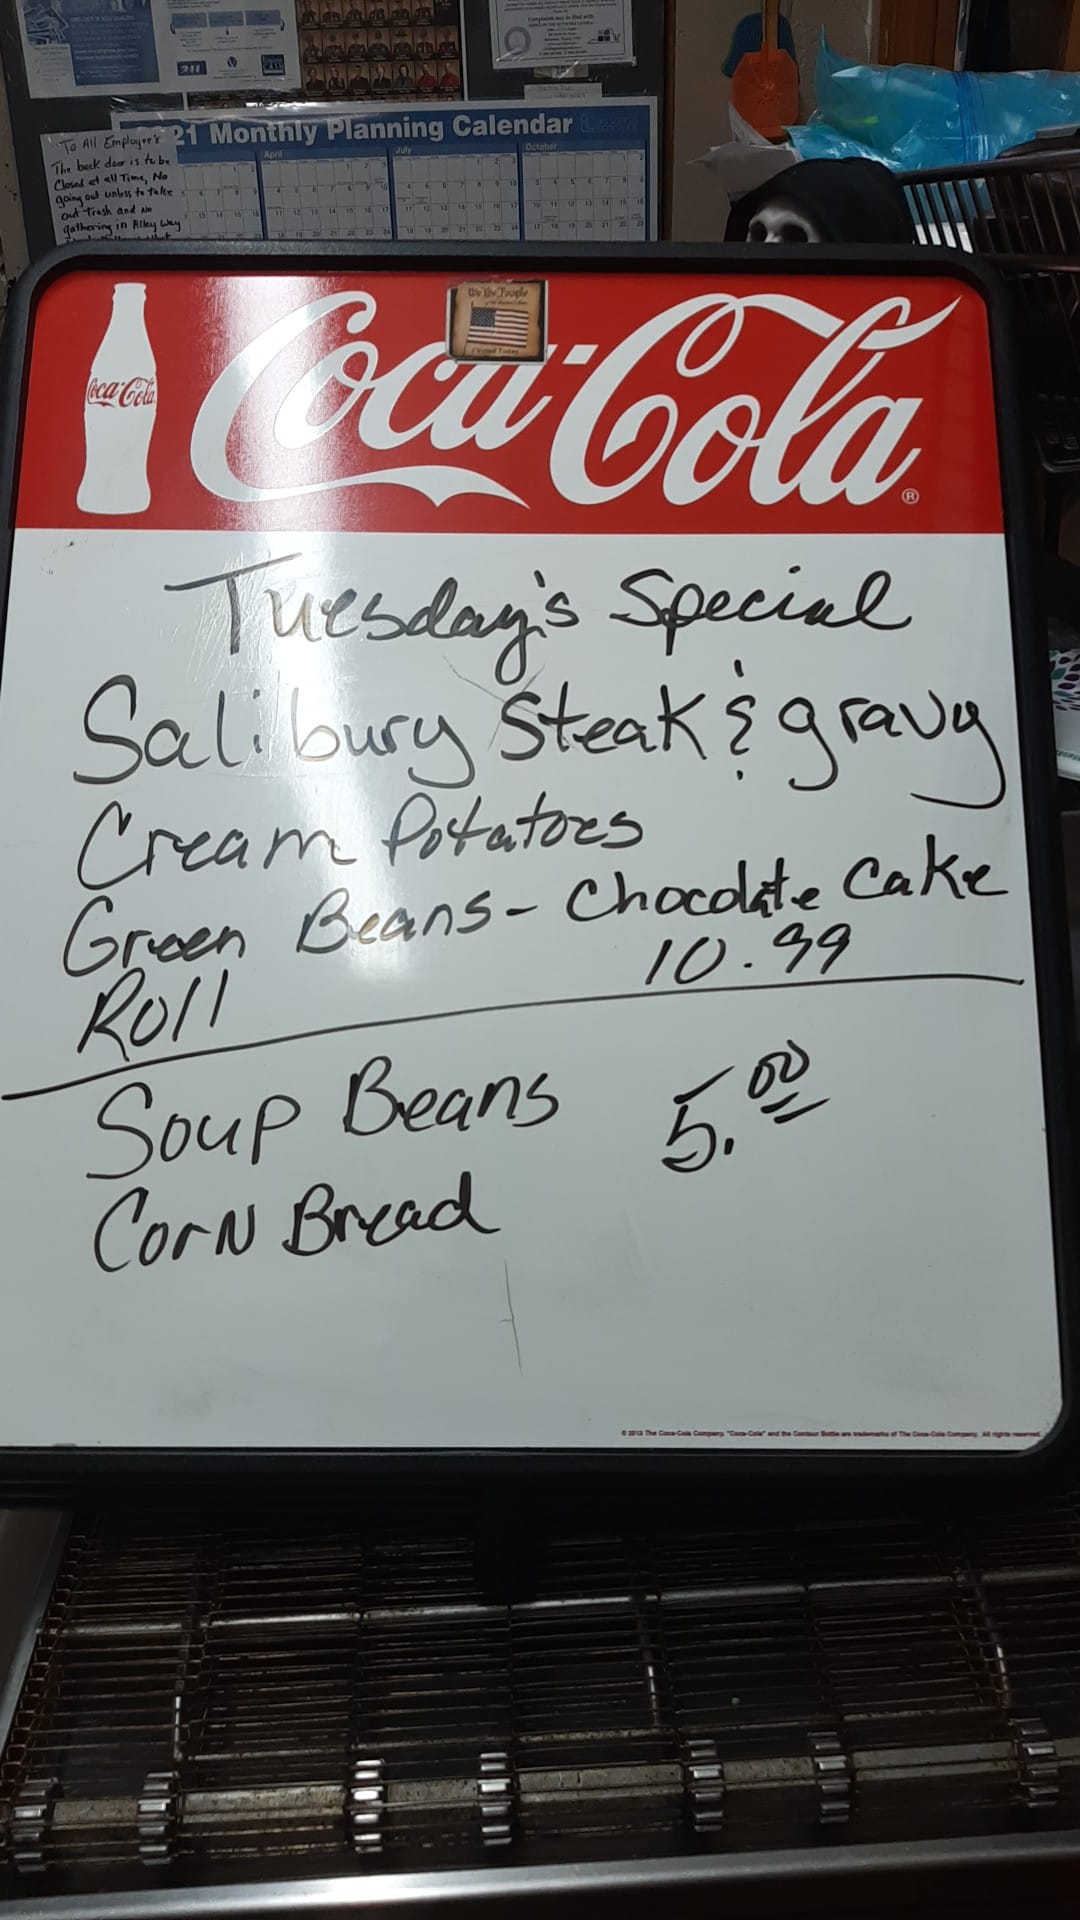 21 Monthly Planning Calendar
April
July
October
To All Employee's
The back door is to be
Closed at all Time, No
going out unless to take
out trash and No
gathering in Alley Way
We the People
I Voted Today
Coca-Cola
Coca-Cola®
Tuesday's Special
Salibury Steak & gravy
Cream Potatoes
Green Beans - Chocolate Cake
Roll 10.99
Soup Beans 5.00
Corn Bread
© 2013 The Coca-Cola Company. "Coca-Cola" and the Contour Bottle are trademarks of The Coca-Cola Company. All rights reserved.